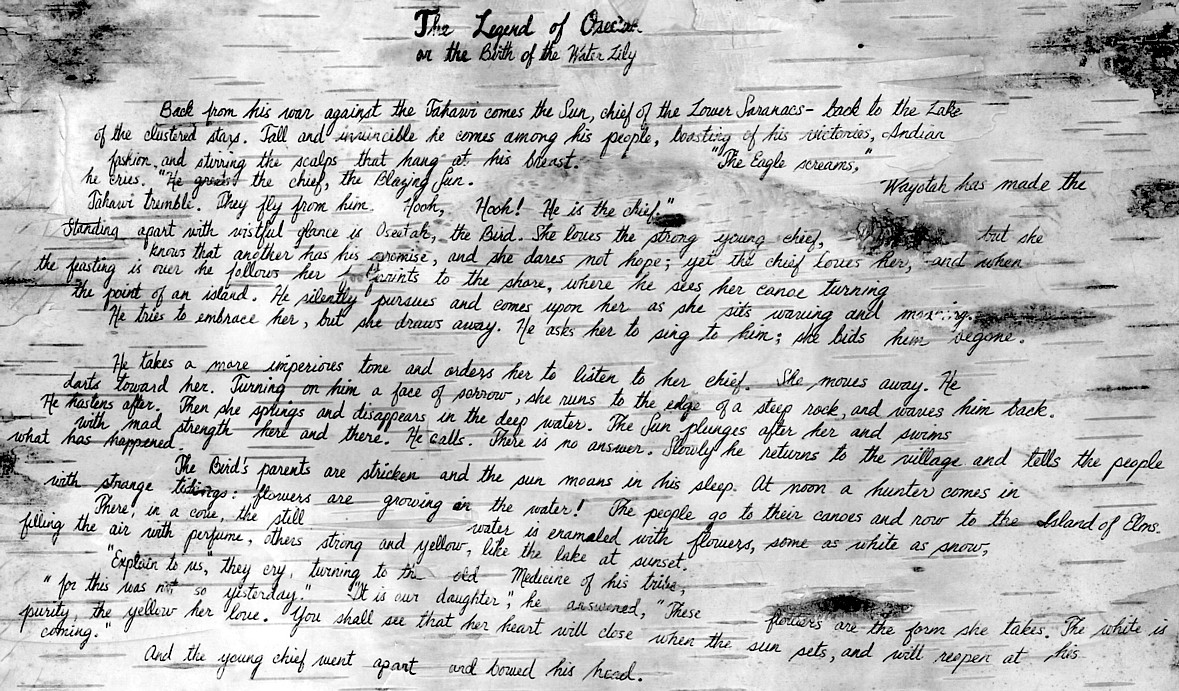 The Legend of Oseetah
or the Birth of the Water Lily
Back from his war against the Tahawi comes the Sun, chief of the Lower Saranacs - back to the Lake
of the clustered stars. Tall and invincible he comes among his people, boasting of his victories, Indian
fashion, and stirring the scalps that hang at his breast. "The Eagle screams,"
he cries. "He greets the chief, the Blazing Sun. Wayotah has made the
Tahawi tremble. They fly from him. Hooh, Hooh! He is the chief."
Standing apart with wistful glance is Oseetah, the Bird. She loves the strong young chief, but she
knows that another has his promise, and she dares not hope; yet the chief loves her, and when
the feasting is over he follows her footprints to the shore, where he sees her canoe turning
the point of an island. He silently pursues and comes upon her as she sits waving and moaning.
He tries to embrace her, but she draws away. He asks her to sing to him; she bids him begone.
He takes a more imperious tone and orders her to listen to her chief. She moves away. He
darts toward her. Turning on him a face of sorrow, she runs to the edge of a steep rock, and waves him back.
He hastens after. Then she springs and disappears in the deep water. The Sun plunges after her and swims
with mad strength here and there. He calls. There is no answer. Slowly he returns to the village and tells the people
what has happened.
The Bird's parents are stricken and the sun moans in his sleep. At noon a hunter comes in
with strange tidings: flowers are growing in the water! The people go to their canoes and row to the Island of Elms.
There, in a cove, the still water is enamaled with flowers, some as white as snow,
filling the air with perfume, others strong and yellow, like the lake at sunset.
"Explain to us," they cry, turning to the old Medicine of his tribe,
"for this was not so yesterday." "It is our daughter," he answered, "These flowers are the form she takes. The white is
purity, the yellow her love. You shall see that her heart will close when the sun sets, and will reopen at his
coming."
And the young chief went apart and bowed his head.